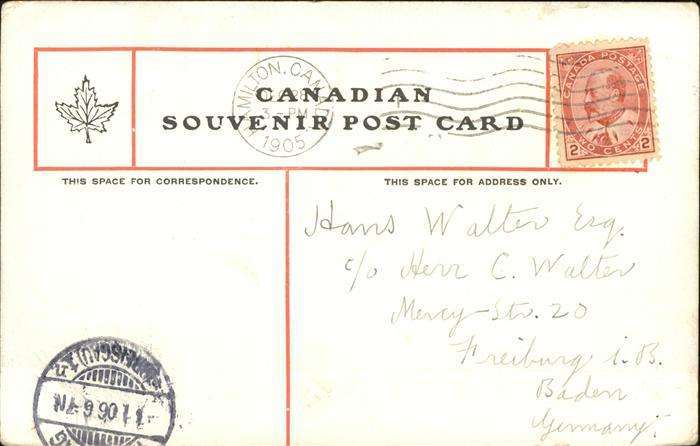 HAMILTON, CANADA
PM
1905
CANADIAN
SOUVENIR POST CARD
CANADA POSTAGE
2 TWO CENTS 2
THIS SPACE FOR CORRESPONDENCE.
THIS SPACE FOR ADDRESS ONLY.
Hans Walter Esq.
c/o Herr C. Walter
Mercy-Str. 20
Freiburg i. B.
Baden
Germany.
1 06 6-7N